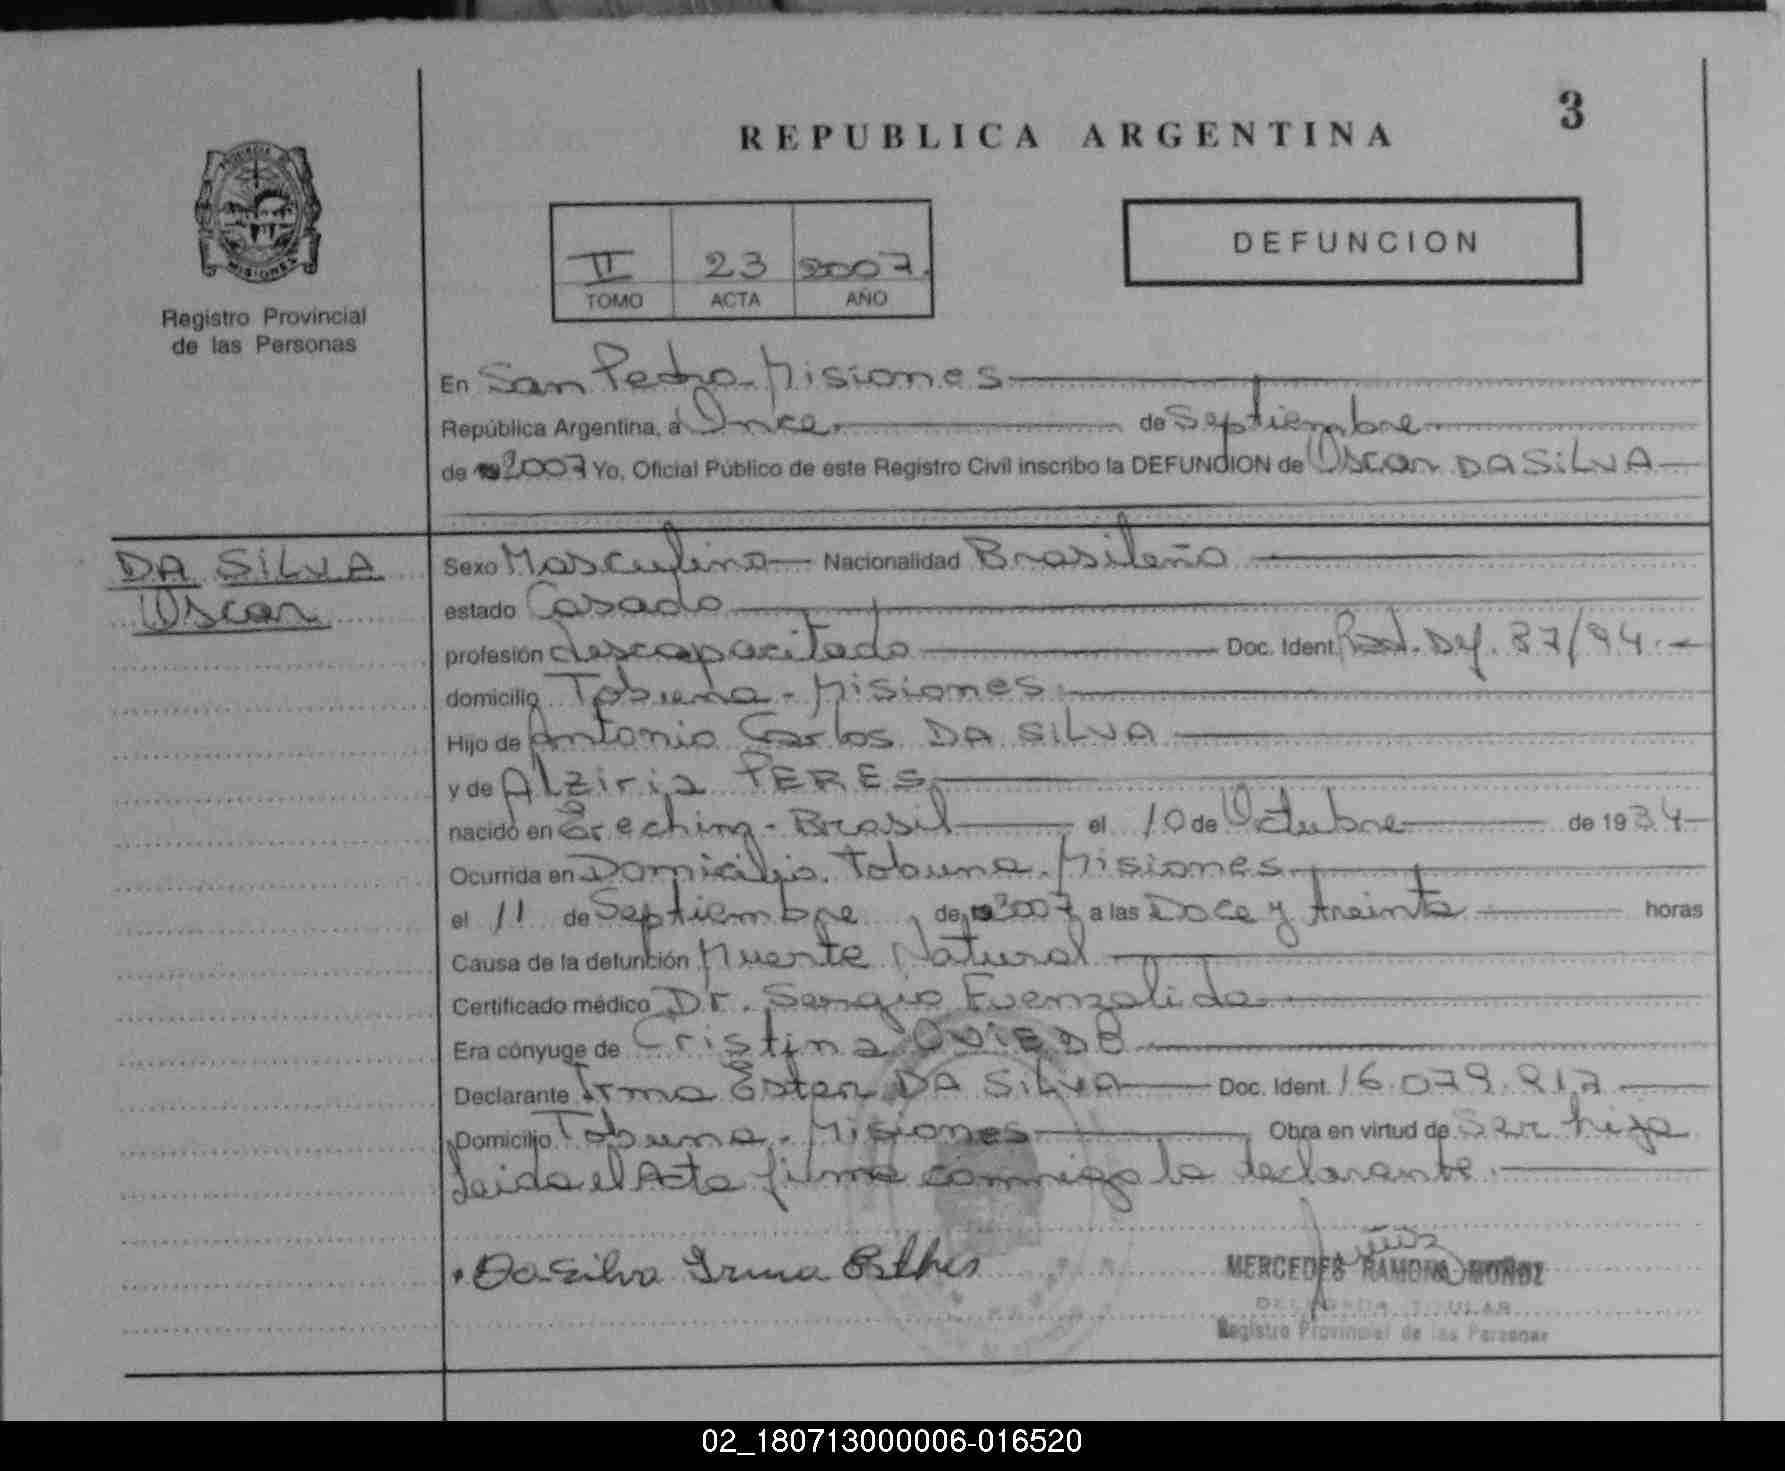 3
REPUBLICA ARGENTINA
PROVINCIA DE
MISIONES
Registro Provincial
de las Personas
II 23 2007.
TOMO ACTA AÑO
DEFUNCION
En San Pedro - Misiones
República Argentina, a Once de Septiembre
de 2007 Yo, Oficial Público de este Registro Civil inscribo la DEFUNCION de Oscar DA SILVA
DA SILVA
Oscar
Sexo Masculino Nacionalidad Brasileña
estado Casado
profesión descapacitado Doc. Ident. 87/94.
domicilio Tobuna - Misiones
Hijo de Antonio Carlos DA SILVA
y de Alziria PERES
nacido en Ereching - Brasil el 10 de Octubre de 1934
Ocurrida en Domicilio. Tobuna. Misiones
el 11 de Septiembre de 2007 a las Doce y treinta horas
Causa de la defunción Muerte Natural
Certificado médico Dr. Sergio Fuenzalida
Era cónyuge de Cristina OVIEDO
Declarante Irma Ester DA SILVA Doc. Ident. 16.079.917
Domicilio Tobuna - Misiones Obra en virtud de Ser hija
Leida el Acta firma conmigo la declarante.
Da Silva Irma Esther
MERCEDES RAMONA MUÑOZ
DELEGADA TITULAR
Registro Provincial de las Personas
02_180713000006-016520